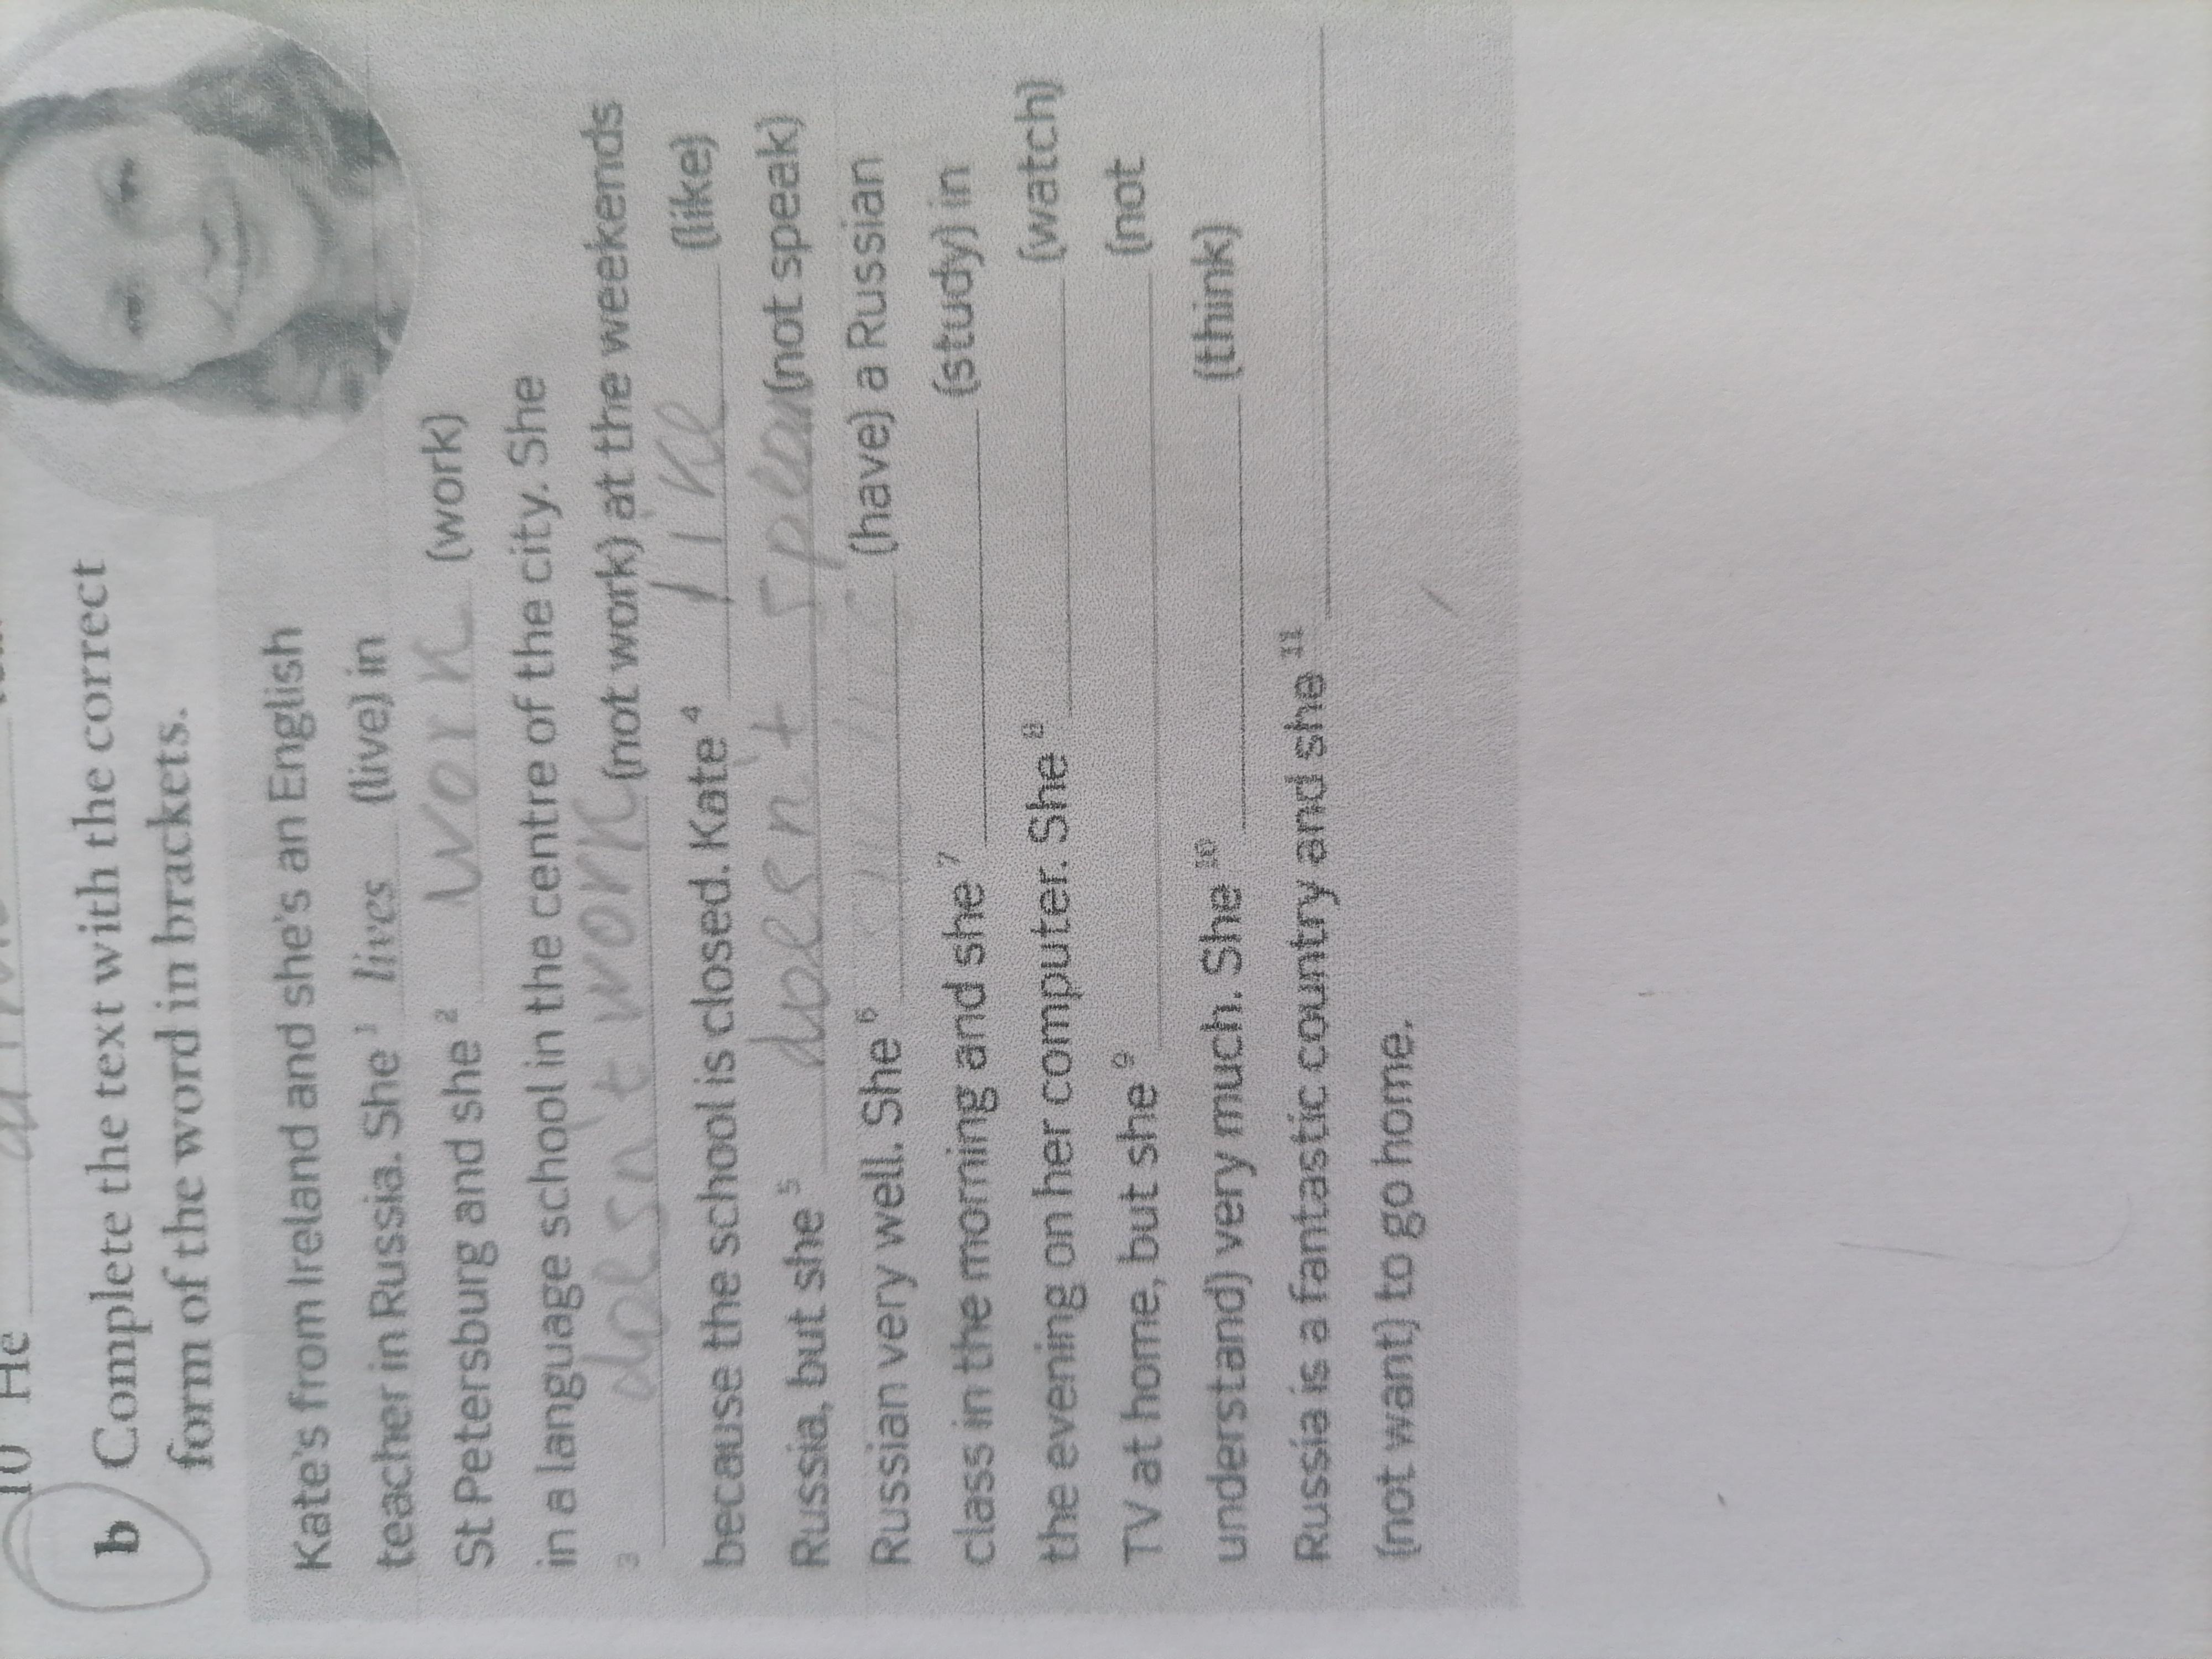 10 He
b Complete the text with the correct
form of the word in brackets.
Kate's from Ireland and she's an English
teacher in Russia. She 1 lives (live) in
St Petersburg and she 2 work (work)
in a language school in the centre of the city. She
3 doesn't work (not work) at the weekends
because the school is closed. Kate 4 like (like)
Russia, but she 5 doesn't spean (not speak)
Russian very well. She 6 (have) a Russian
class in the morning and she 7 (study) in
the evening on her computer. She 8 (watch)
TV at home, but she 9 (not
understand) very much. She 10 (think)
Russia is a fantastic country and she 11
(not want) to go home.